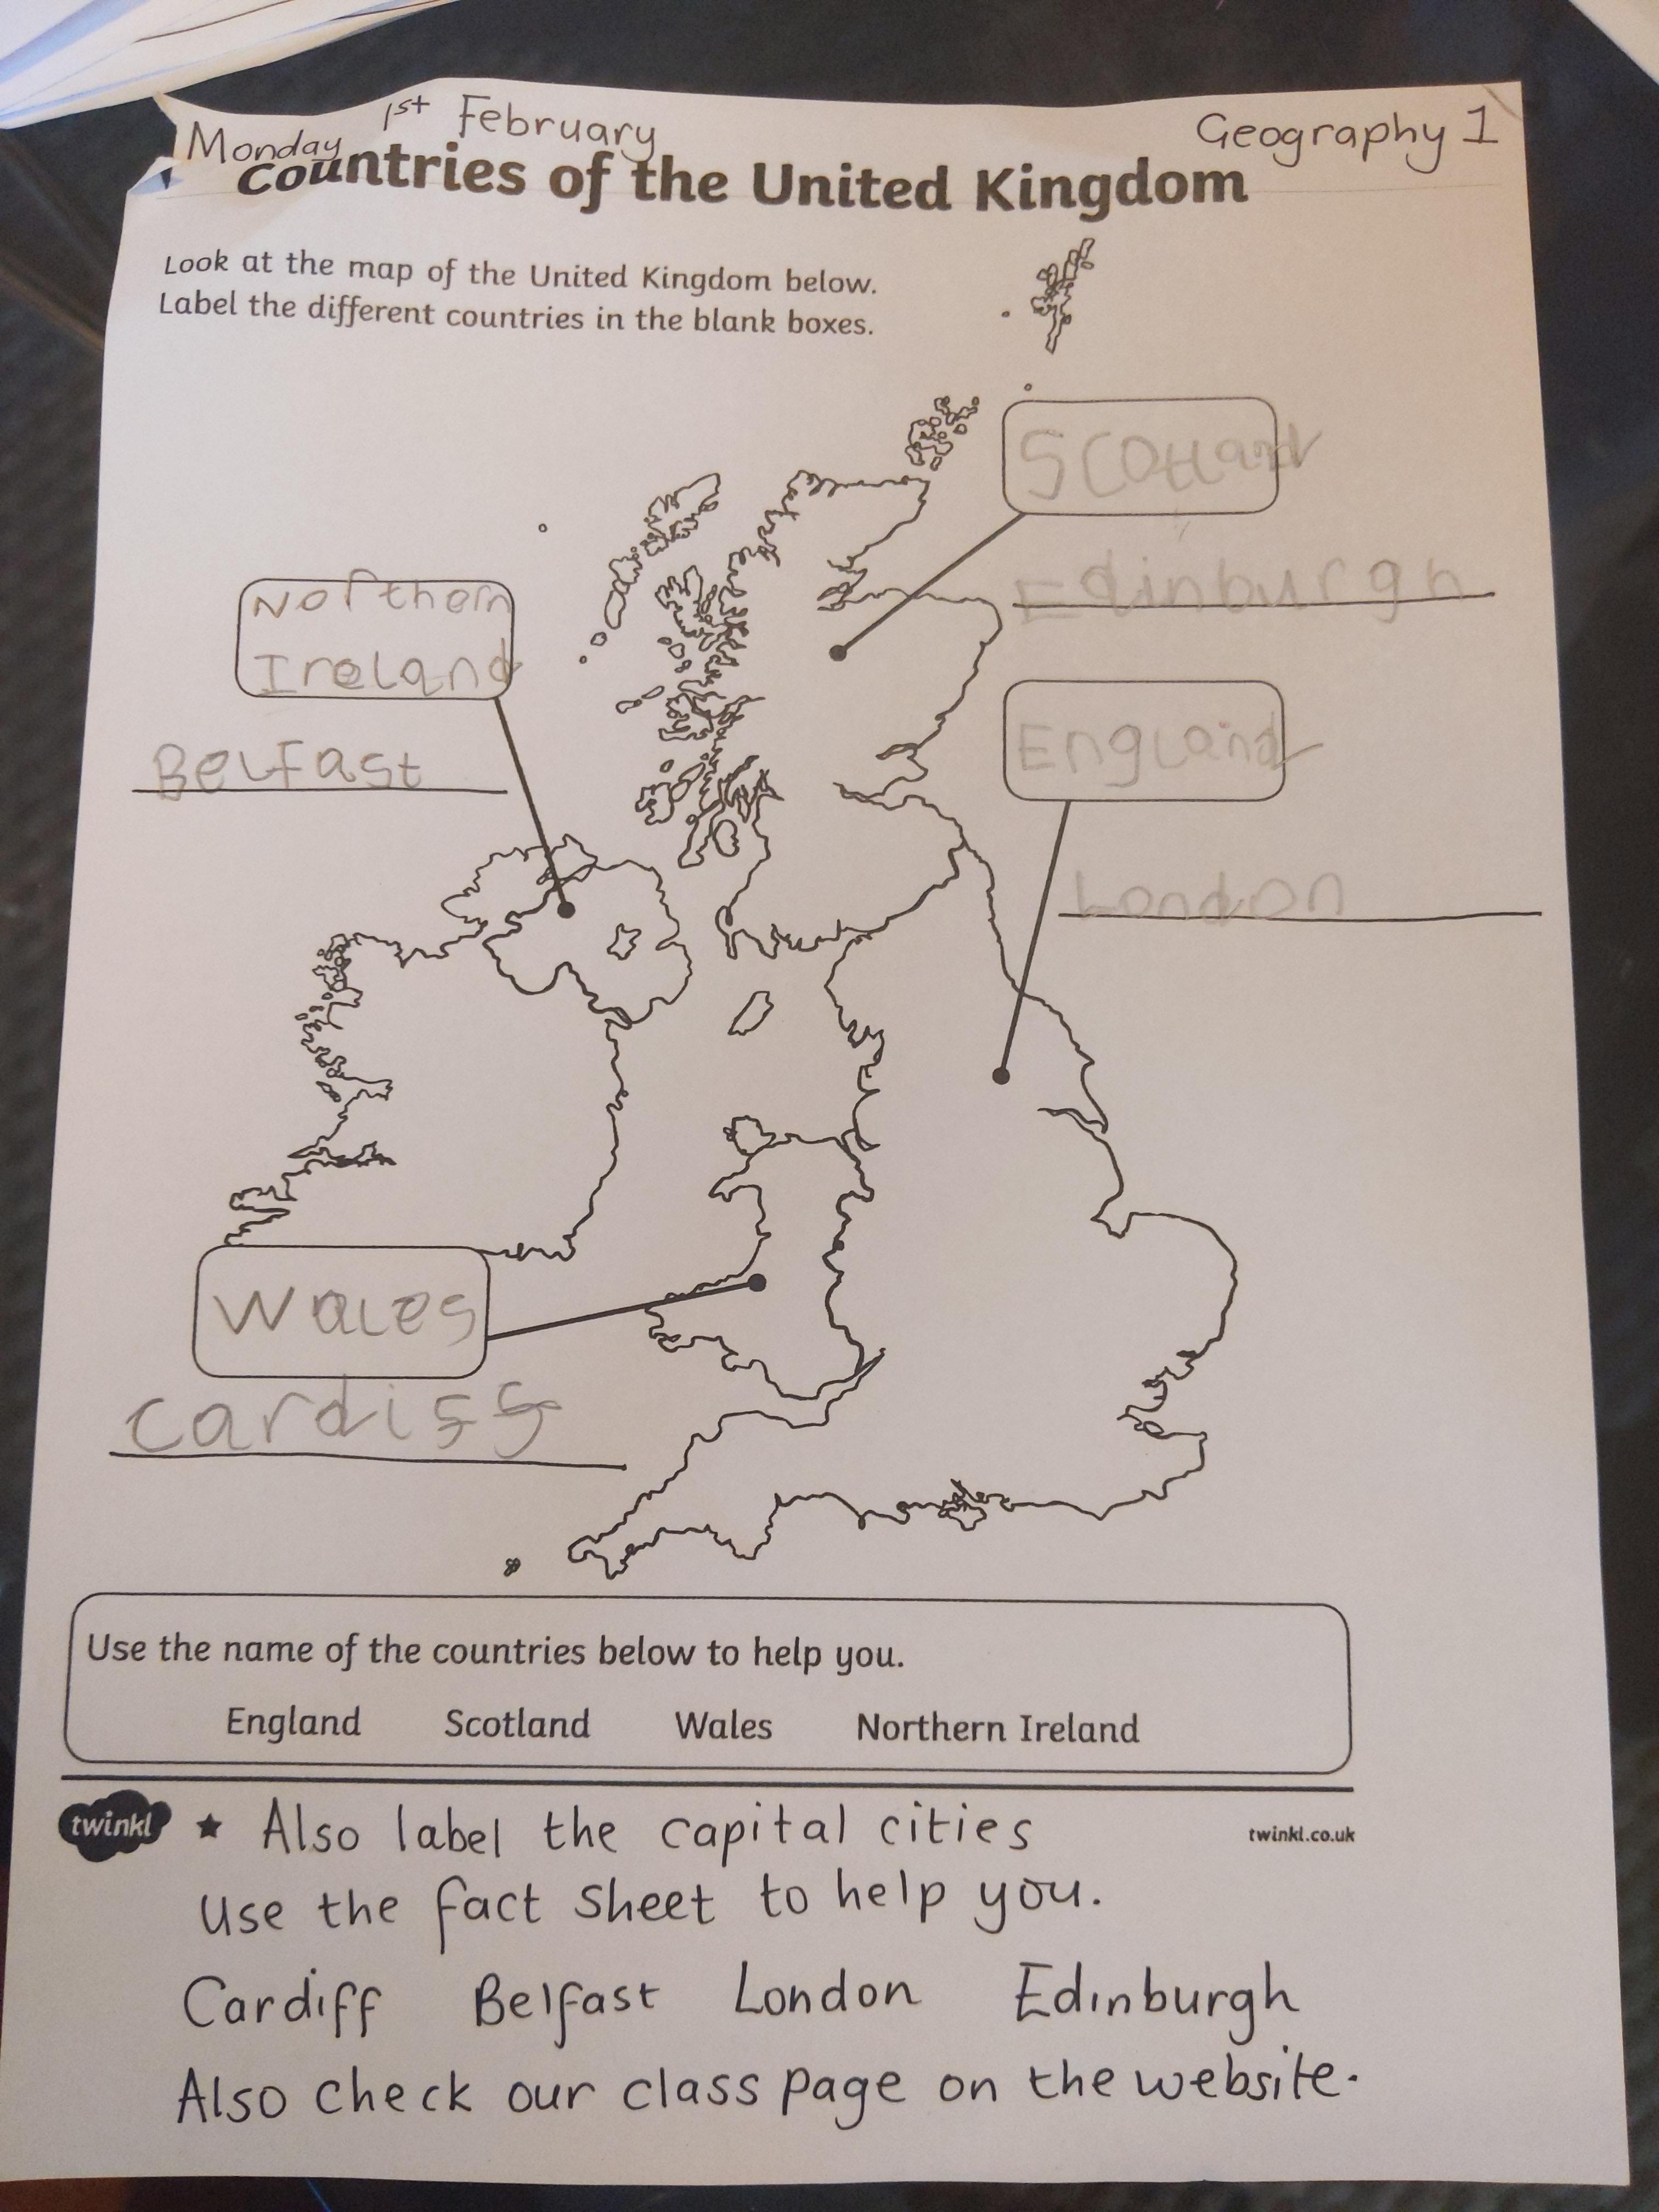 Monday 1st February
Geography 1
Countries of the United Kingdom
Look at the map of the United Kingdom below.
Label the different countries in the blank boxes.
Scotland
Edinburgh
Northern
Ireland
Belfast
England
London
Wales
Cardiff
Use the name of the countries below to help you.
England Scotland Wales Northern Ireland
twinkl
★ Also label the capital cities
twinkl.co.uk
Use the fact sheet to help you.
Cardiff Belfast London Edinburgh
Also check our class page on the website.